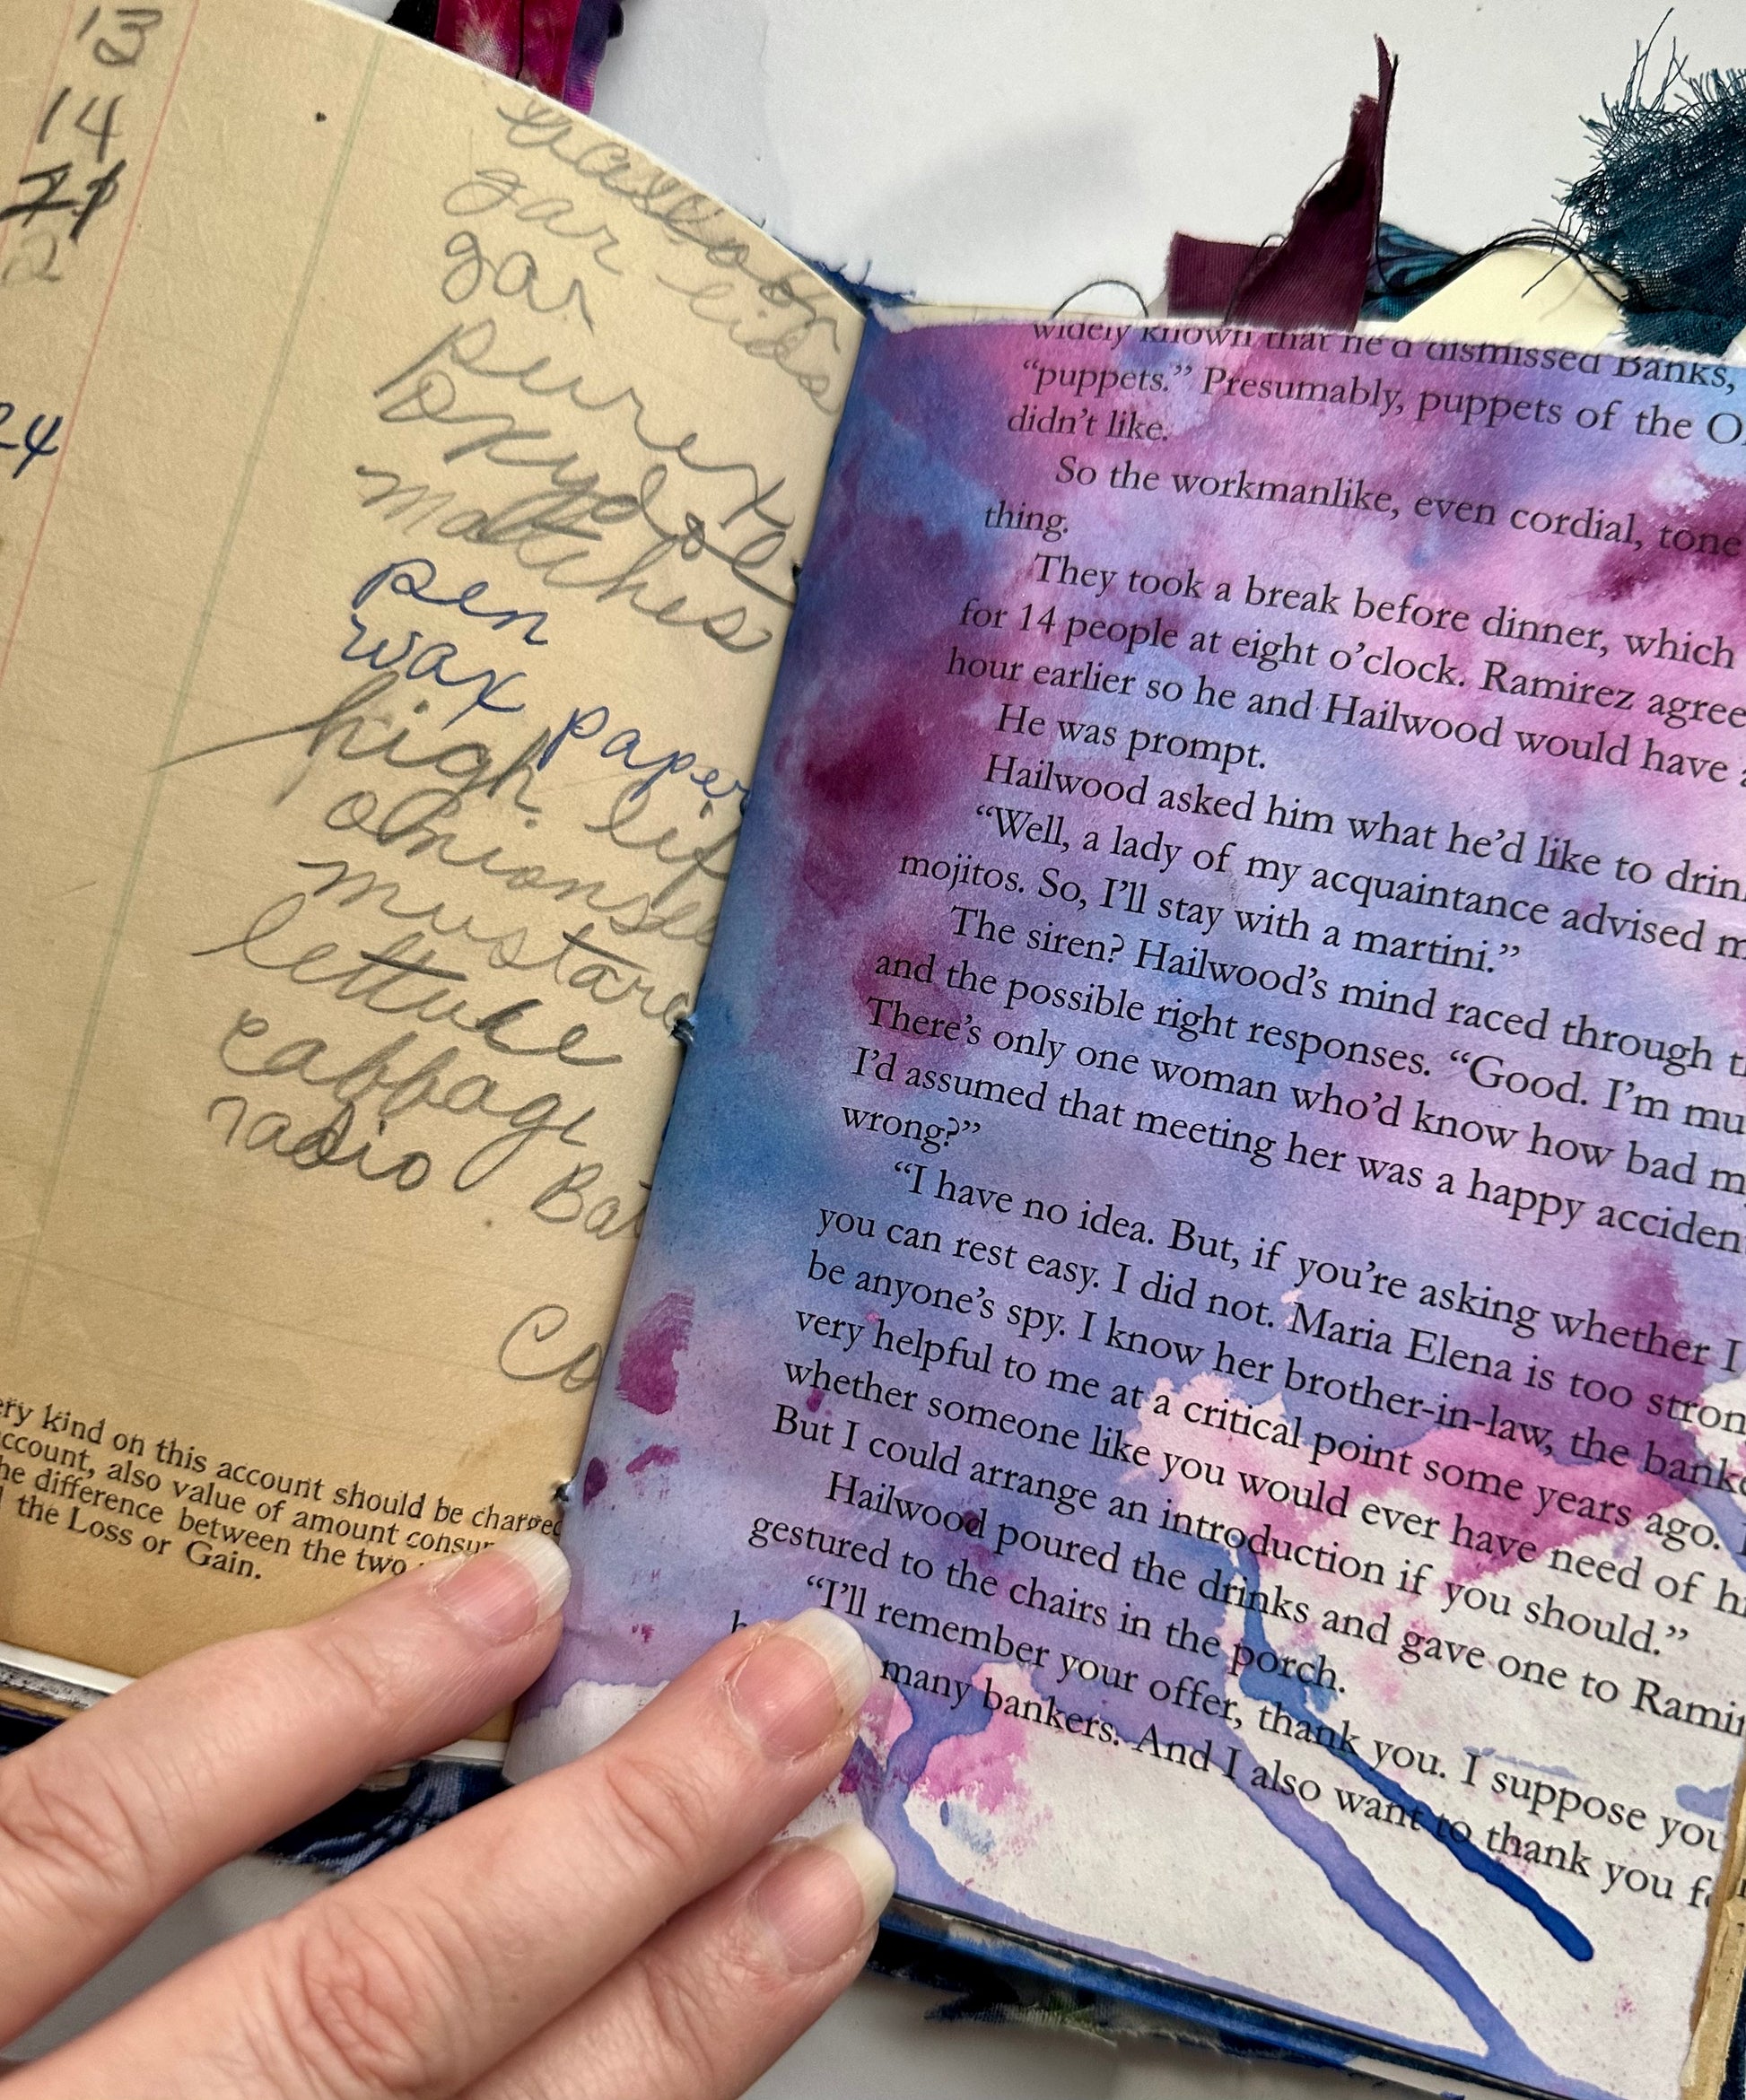 13
14
71
2
24
gar lids
gar
purex
oxydol
matches
pen
wax paper
high lif
onions
mustard
lettuce
cabbage
radio Bat
Co
ery kind on this account should be charged
ccount, also value of amount consu
he difference between the two
the Loss or Gain.
widely known that he'd dismissed Banks,
“puppets.” Presumably, puppets of the O
didn’t like.
So the workmanlike, even cordial, tone
thing.
They took a break before dinner, which
for 14 people at eight o’clock. Ramirez agree
hour earlier so he and Hailwood would have a
He was prompt.
Hailwood asked him what he’d like to drin
“Well, a lady of my acquaintance advised m
mojitos. So, I’ll stay with a martini.”
The siren? Hailwood’s mind raced through t
and the possible right responses. “Good. I’m mu
There’s only one woman who’d know how bad m
I’d assumed that meeting her was a happy acciden
wrong?”
“I have no idea. But, if you’re asking whether I
you can rest easy. I did not. Maria Elena is too stron
be anyone’s spy. I know her brother-in-law, the banke
very helpful to me at a critical point some years ago.
whether someone like you would ever have need of hi
But I could arrange an introduction if you should.”
Hailwood poured the drinks and gave one to Ramir
gestured to the chairs in the porch.
“I’ll remember your offer, thank you. I suppose you
many bankers. And I also want to thank you f